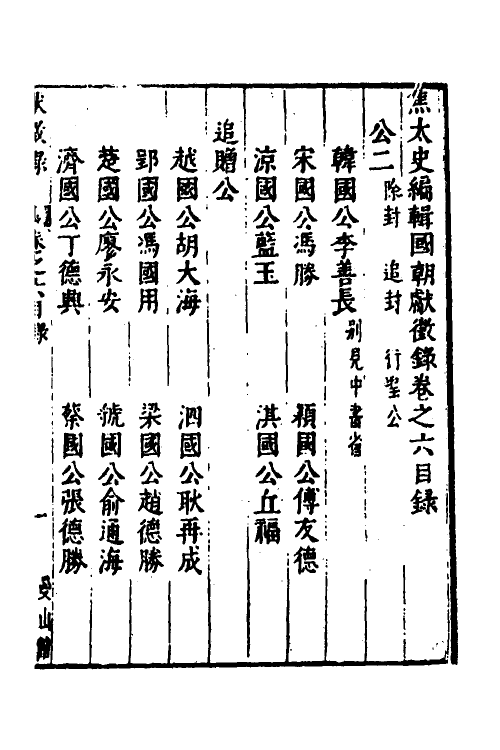 焦太史編輯國朝獻徵錄卷之六目錄
公二 除封 追封 行聖公
韓國公李善長 別見中書省
宋國公馮勝 穎國公傅友德
涼國公藍玉 淇國公丘福
追贈公
越國公胡大海 泗國公耿再成
郢國公馮國用 梁國公趙德勝
楚國公廖永安 虢國公俞通海
濟國公丁德興 蔡國公張德勝
獻徵錄 卷之六目錄 一 曼山館